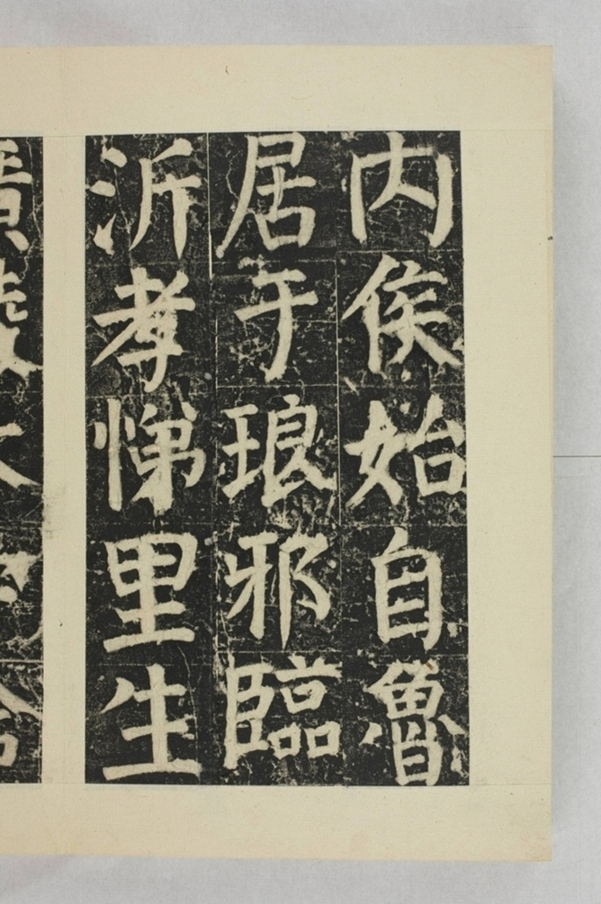 内侯始自魯
居于琅邪臨
沂孝悌里生